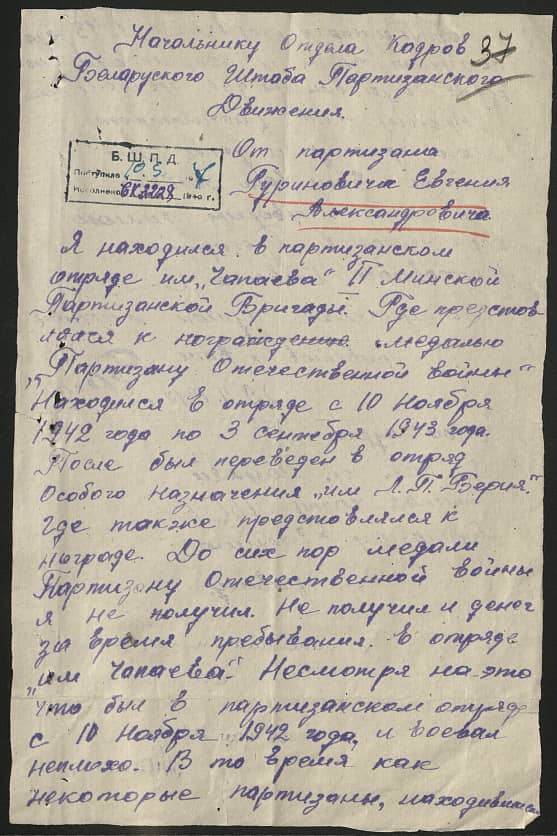 Начальнику Отдела Кадров 37
Беларуского Штаба Партизанского
Движения.
Б. Ш. П. Д.
Поступило 10 5
Исполнено 194 г.
От партизана
Гуриновича Евгения
Александровича
Я находился в партизанском
отряде им „Чапаева" II Минской
Партизанской Бригады. Где предстов
лялся к награждению медалью
„Партизану Отечественной войны"
Находился в отряде с 10 Ноября
1942 года по 3 сентебря 1943 года.
После был переведен в отряд
особого назначения „им Л.П. Берия".
Где также предстовлялся к
награде. До сих пор медали
Партизану Отечественной войны
я не получил. Не получил и денег
за время пребывания в отряде
„им Чапаева". Несмотря на это
что был в партизанском отряде
с 10 Ноября 1942 года, и воевал
неплохо. В то время как
некоторые партизаны, находившиеся